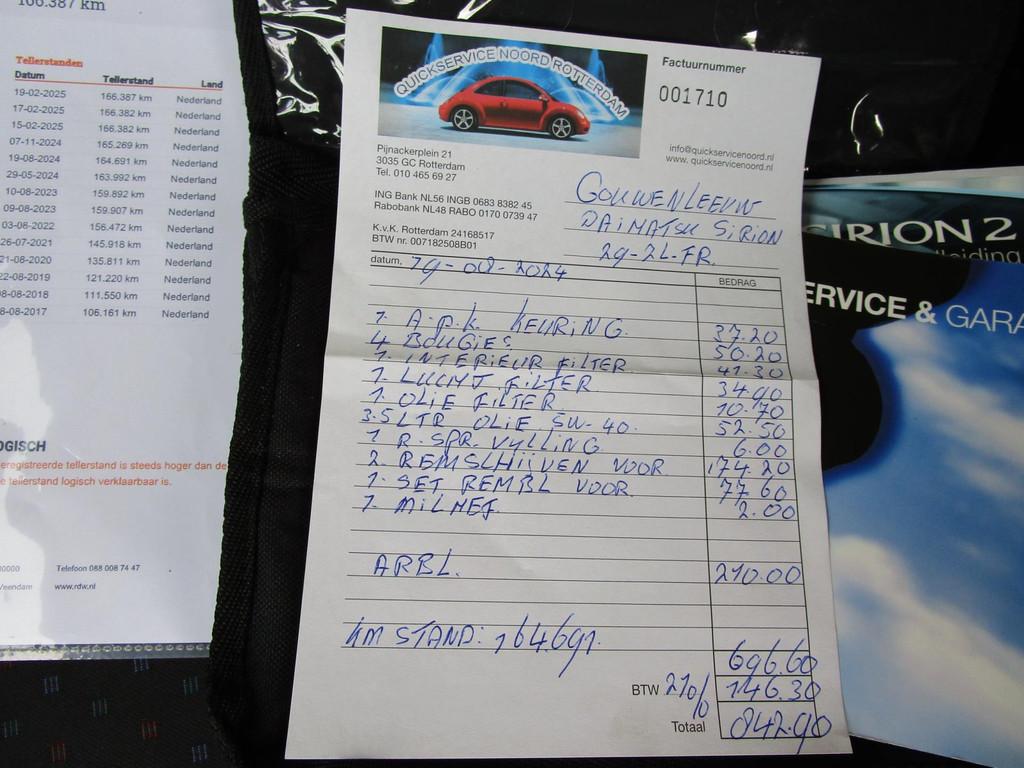 166.387 km
Tellerstanden
Datum Tellerstand Land
19-02-2025 166.387 km Nederland
17-02-2025 166.382 km Nederland
15-02-2025 166.382 km Nederland
07-11-2024 165.269 km Nederland
19-08-2024 164.691 km Nederland
29-05-2024 163.992 km Nederland
10-08-2023 159.892 km Nederland
09-08-2023 159.907 km Nederland
03-08-2022 156.472 km Nederland
26-07-2021 145.918 km Nederland
21-08-2020 135.811 km Nederland
22-08-2019 121.220 km Nederland
8-08-2018 111.550 km Nederland
8-08-2017 106.161 km Nederland
OGISCH
eregistreerde tellerstand is steeds hoger dan de
e tellerstand logisch verklaarbaar is.
00000 Telefoon 088 008 74 47
Veendam www.rdw.nl
QUICKSERVICE NOORD ROTTERDAM
Factuurnummer
001710
info@quickservicenoord.nl
www. quickservicenoord.nl
Pijnackerplein 21
3035 GC Rotterdam
Tel. 010 465 69 27
ING Bank NL56 INGB 0683 8382 45
Rabobank NL48 RABO 0170 0739 47
K.v.K. Rotterdam 24168517
BTW nr. 007182508B01
GOUWENLEEUW
DAIMATSU SIRION
29-ZL-FR.
datum, 19-08-2024
BEDRAG
1. A.P.K. KEURING. 37.20
4 BOUGIES 50.20
1. INTERIEUR FILTER 41.30
1. LUCHT FILTER 34.90
1. OLIE FILTER. 10.70
3.5 LTR OLIE 5W-40. 52.50
1 R.SPR. VULLING. 6.00
2. REMSCHIJVEN VOOR 174.20
1. SET REMBL VOOR. 77.60
1. MILHEF. 2.00
ARBL. 210.00
KM STAND: 164691.
696.60
BTW 21% 146.30
Totaal 842.90
SIRION 2
leiding
ERVICE & GARA